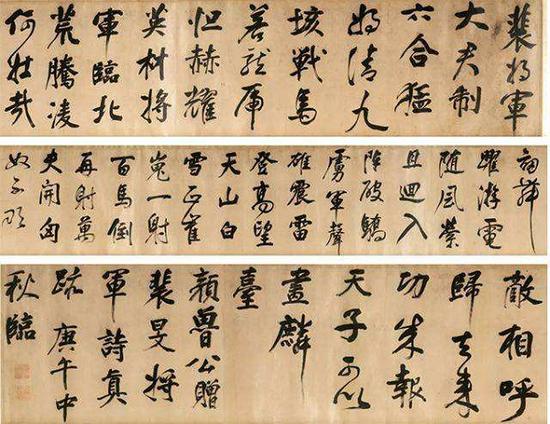 裴將軍
大夫制
六合猛
將清九
垓戰馬
若龍虎
怛赫耀
英材將
軍臨北
荒騰凌
何壯哉
劍舞
躍游電
随風縈
且迴入
陣破驕
虜軍聲
雄震雷
登高望
天山白
雪正崔
嵬一射
百馬倒
再射萬
夫開匈
奴不敢
敵相呼
歸去来
功成報
天子可以
畫麟
臺
顏魯公贈
裴旻將
軍詩真
跡 庚午中
秋臨